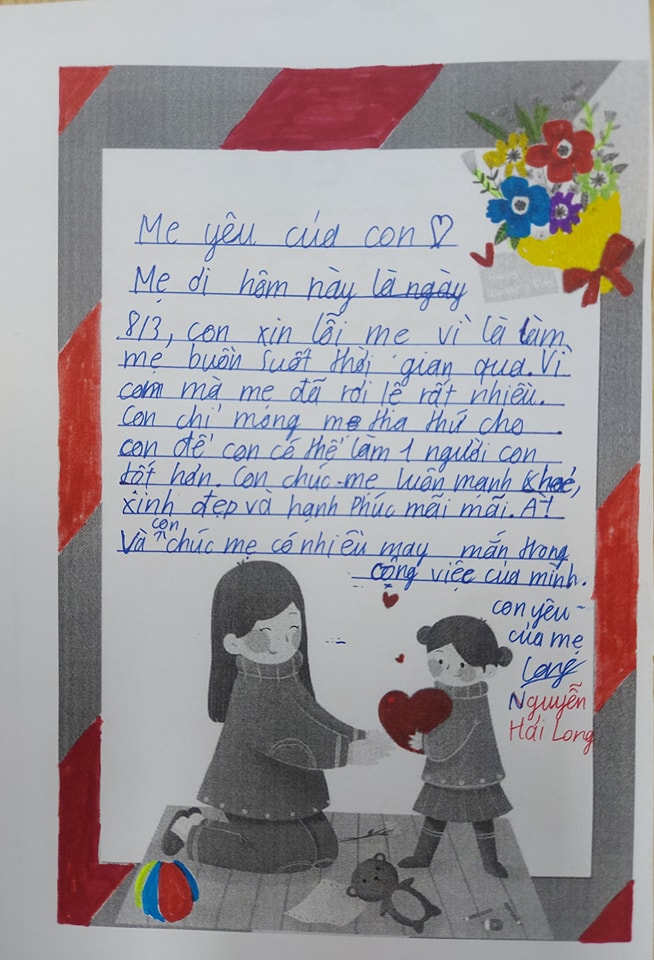 Mẹ yêu của con ♡
Mẹ ơi hôm này là ngày
8/3, con xin lỗi mẹ vì là làm
mẹ buồn suốt thời gian qua. Vì
con mà mẹ đã rơi lệ rất nhiều.
Con chỉ mong mẹ tha thứ cho
con để con có thể làm 1 người con
tốt hơn. Con chúc mẹ luôn mạnh khoẻ,
xinh đẹp và hạnh Phúc mãi mãi. À!
Và con chúc mẹ có nhiều may mắn trong
công việc của mình.
con yêu
của mẹ
Long
Nguyễn
Hải Long